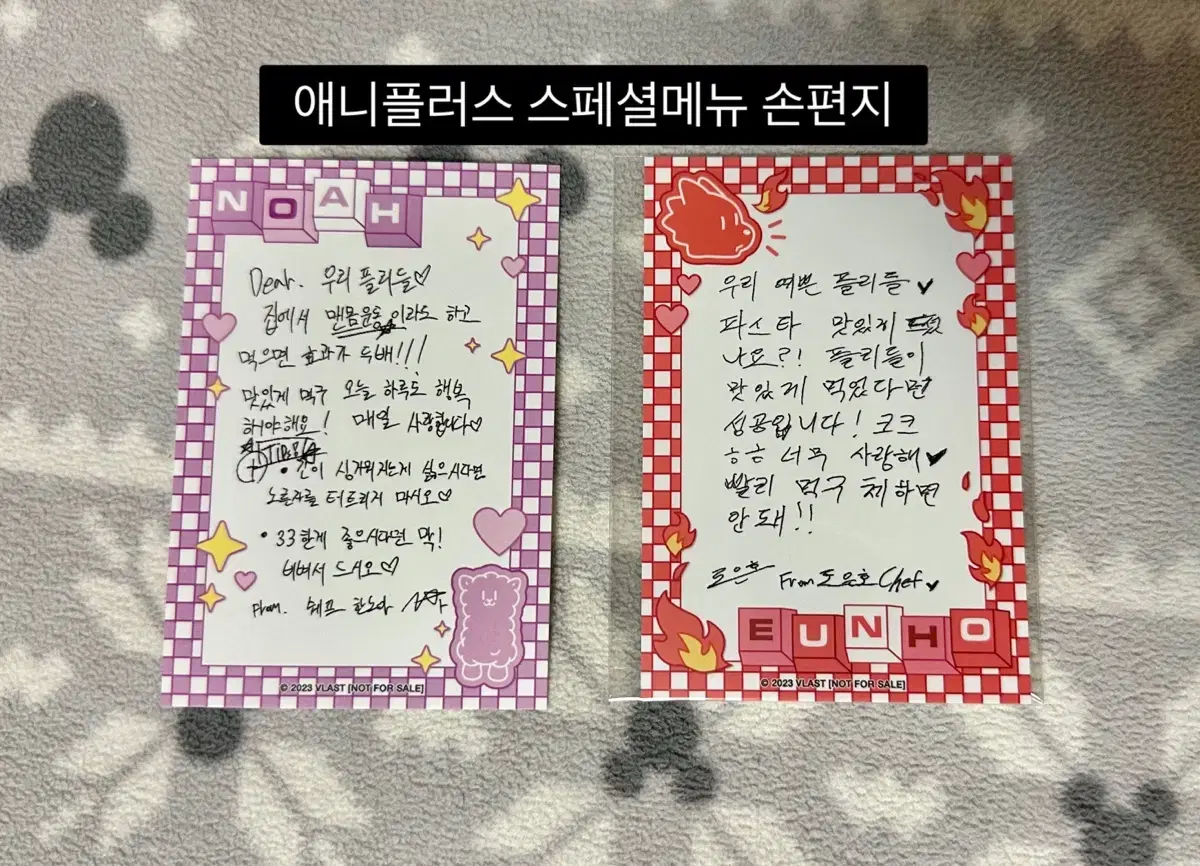 애니플러스 스페셜메뉴 손편지
NOAH
Dear. 우리 플리들♡
집에서 맨몸운동이라도 하고
먹으면 효과가 두배!!!
맛있게 먹구 오늘 하루도 행복
해야해요! 매일 사랑합니다♡
• 간이 싱거워지는게 싫으시다면
노른자를 터트리지 마시오♡
• 33한게 좋으시다면 막!
비벼서 드시오♡
From. 쉐프 한노아
© 2023 VLAST [NOT FOR SALE]
우리 여쁜 플리들♥
파스타 맛있게
나요?! 플리들이
맛있게 먹었다면
성공입니다! 코크
ㅎㅎ 너무 사랑해♥
빨리 먹구 체하면
안돼!!
도은호 From 도은호 Chef♥
EUNHO
© 2023 VLAST [NOT FOR SALE]